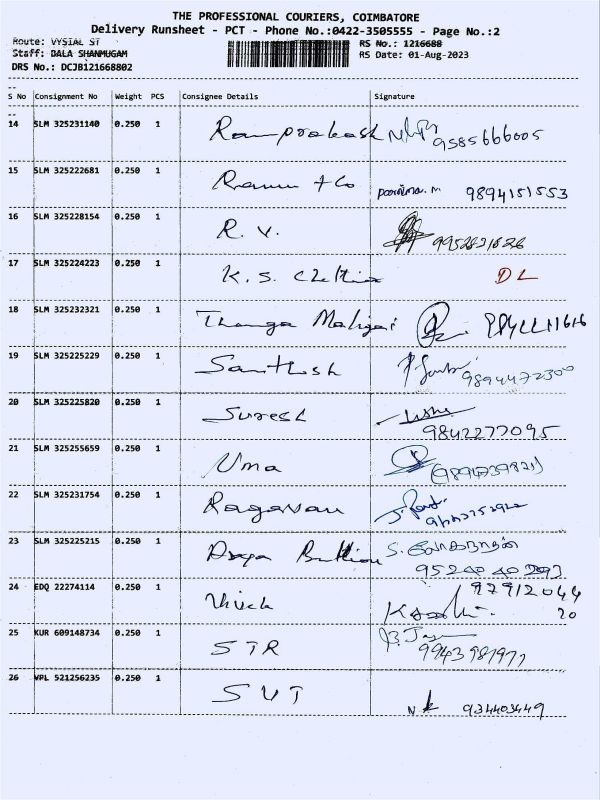 THE PROFESSIONAL COURIERS, COIMBATORE
Delivery Runsheet - PCT - Phone No.:0422-3505555 - Page No.:2
Route: VYSIAL ST RS No.: 1216688
Staff: BALA SHANMUGAM RS Date: 01-Aug-2023
DRS No.: DCJB121668802
S No Consignment No Weight PCS Consignee Details Signature
14 SLM 325231140 0.250 1 Ramprakash 9585666005
15 SLM 325222681 0.250 1 Ramu & Co 9894151553
16 SLM 325228154 0.250 1 R. V.
17 SLM 325224223 0.250 1 K. S. Chettiar DL
18 SLM 325232321 0.250 1 Thanga Maligai
19 SLM 325225229 0.250 1 Santhosh 9894472300
20 SLM 325225820 0.250 1 Suresh
9842277095
21 SLM 325255659 0.250 1 Uma (9894739821)
22 SLM 325231754 0.250 1 Ragavan
23 SLM 325225215 0.250 1 S.
95240 40293
24 EDQ 22274114 0.250 1 Vivek 97912044
20
25 KUR 609148734 0.250 1 STR
9943981977
26 VPL 521256235 0.250 1 SVT 934403449